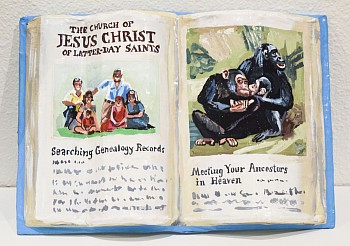 THE CHURCH OF
JESUS CHRIST
OF LATTER-DAY SAINTS
Searching Genealogy Records
Meeting Your Ancestors
in Heaven